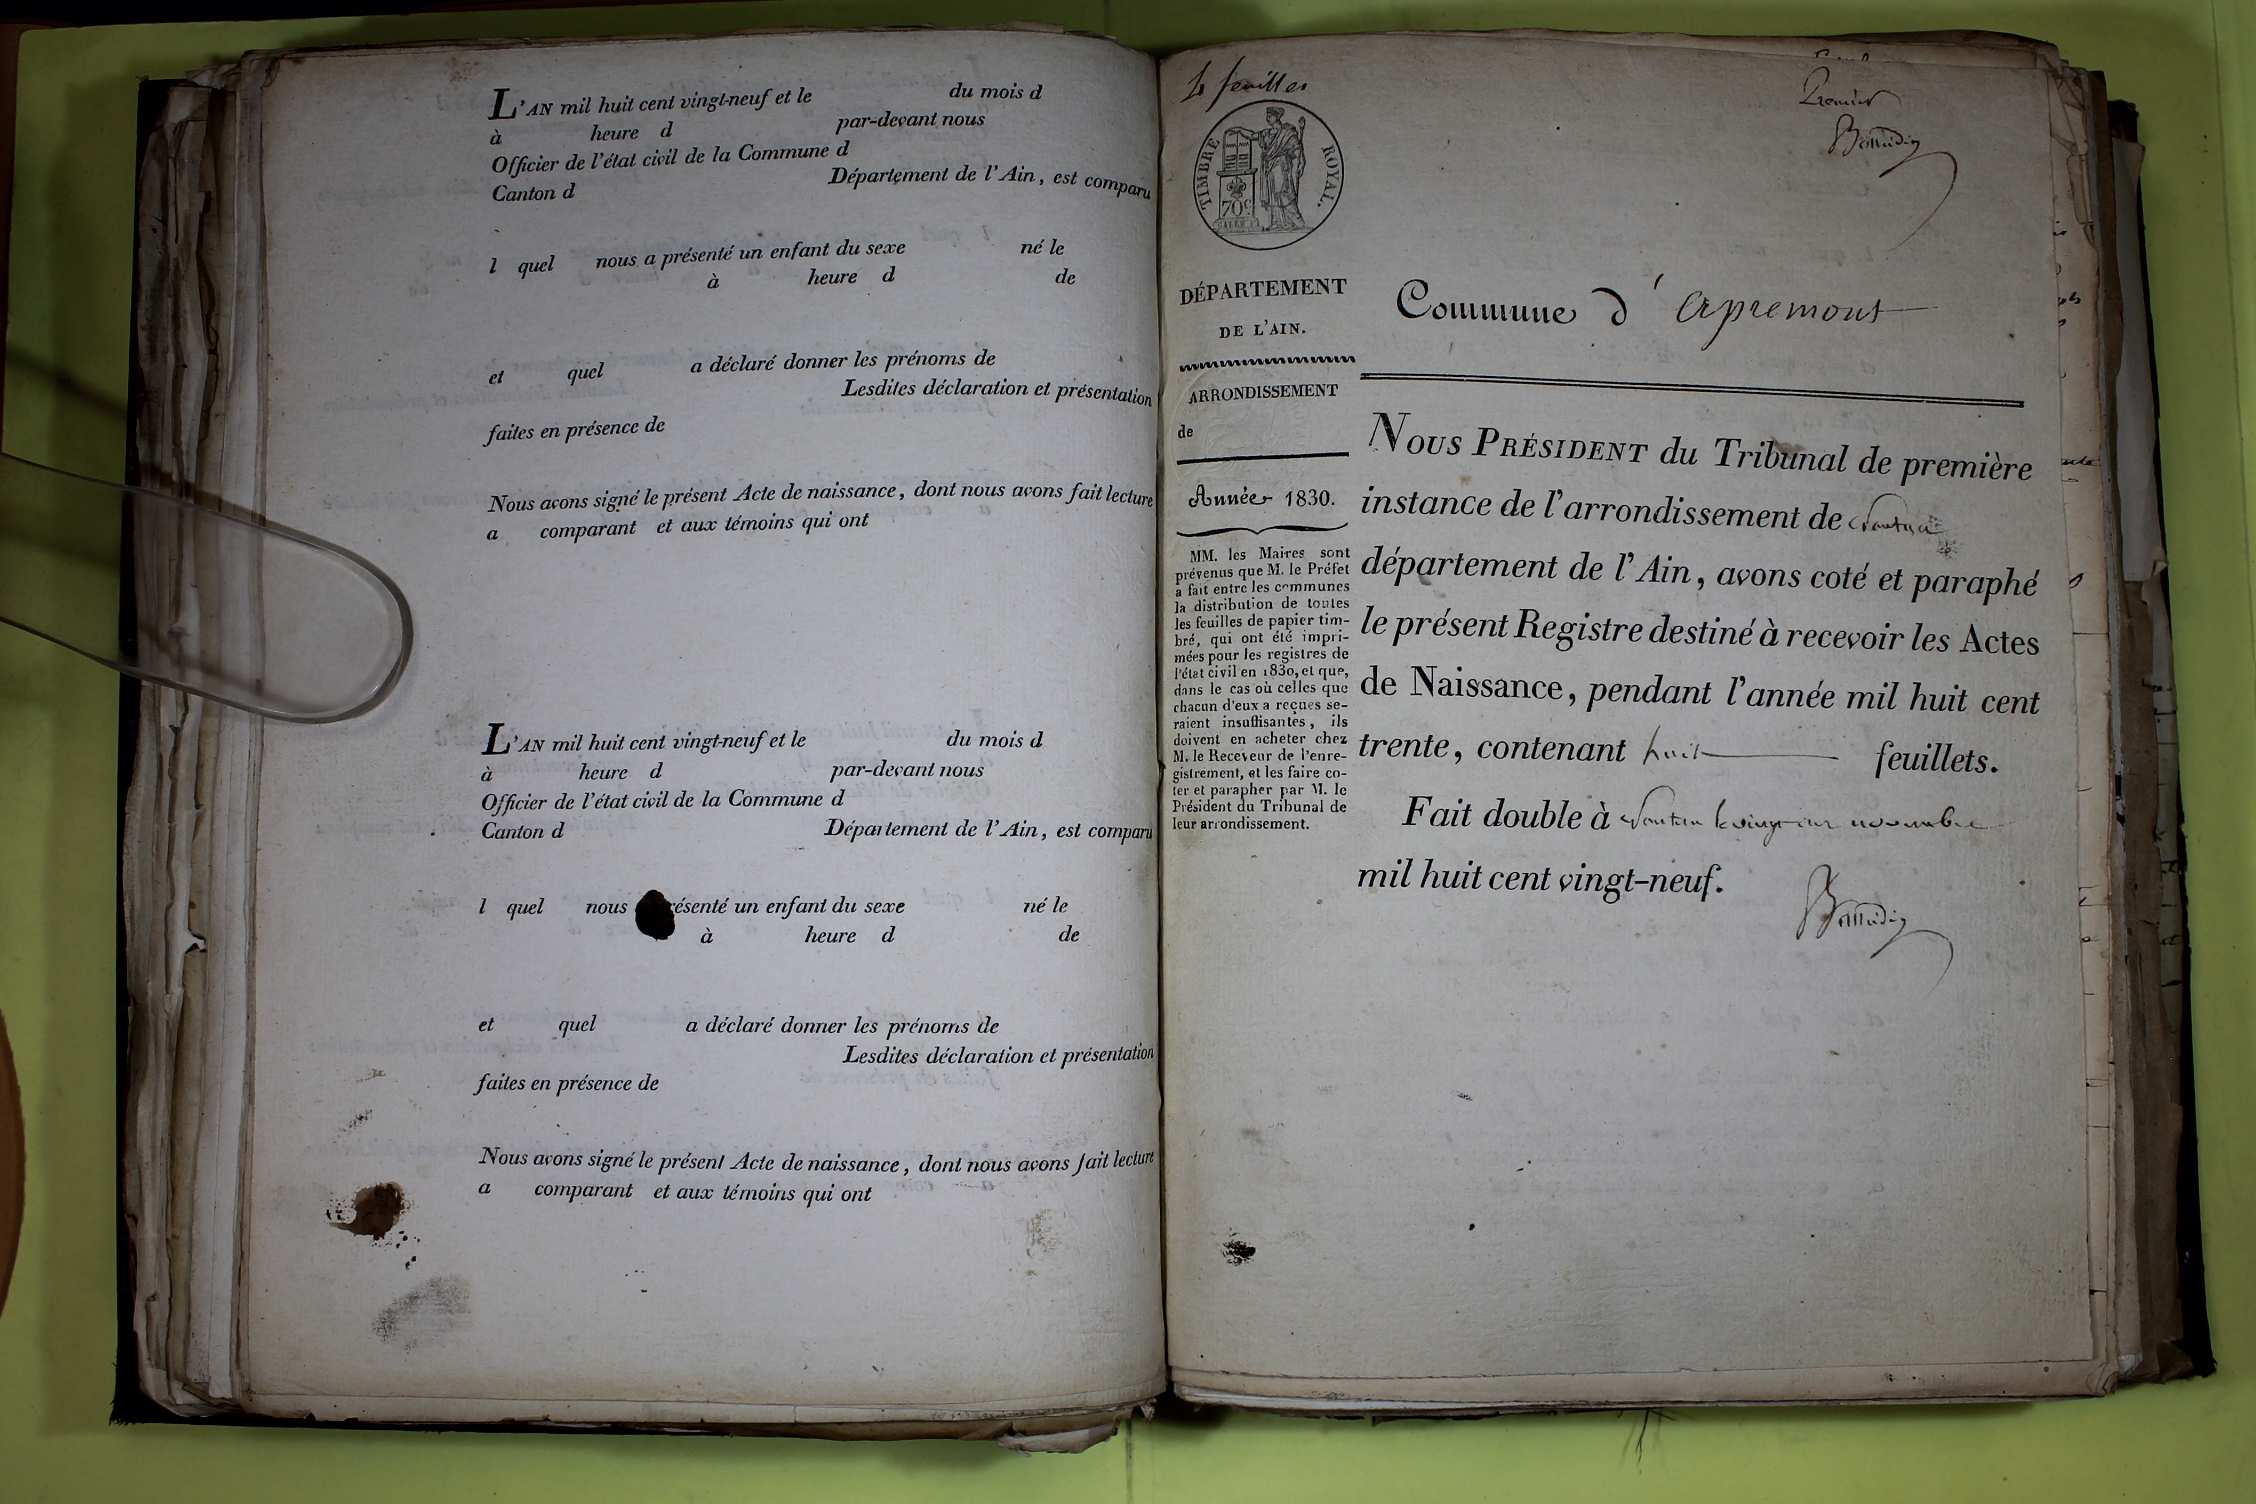 L'AN mil huit cent vingt-neuf et le du mois d
à heure d par-devant nous
Officier de l'état civil de la Commune d
Canton d Département de l'Ain, est comparu
l quel nous a présenté un enfant du sexe né le
à heure d de
et quel a déclaré donner les prénoms de
Lesdites déclaration et présentation
faites en présence de
Nous avons signé le présent Acte de naissance, dont nous avons fait lecture
a comparant et aux témoins qui ont
L'AN mil huit cent vingt-neuf et le du mois d
à heure d par-devant nous
Officier de l'état civil de la Commune d
Canton d Département de l'Ain, est comparu
l quel nous résenté un enfant du sexe né le
à heure d de
et quel a déclaré donner les prénoms de
Lesdites déclaration et présentation
faites en présence de
Nous avons signé le présent Acte de naissance, dont nous avons fait lecture
a comparant et aux témoins qui ont
feuilles
Premier
TIMBRE ROYAL.
70c
DÉPARTEMENT
DE L'AIN.
ARRONDISSEMENT
de
Année 1830.
MM. les Maires sont
prévenus que M. le Préfet
a fait entre les communes
la distribution de toutes
les feuilles de papier tim-
bré, qui ont été impri-
mées pour les registres de
l'état civil en 1830, et que,
dans le cas où celles que
chacun d'eux a reçues se-
raient insuffisantes, ils
doivent en acheter chez
M. le Receveur de l'enre-
gistrement, et les faire co-
ter et parapher par M. le
Président du Tribunal de
leur arrondissement.
Commune d' apremont
NOUS PRÉSIDENT du Tribunal de première
instance de l'arrondissement de Nantua
département de l'Ain, avons coté et paraphé
le présent Registre destiné à recevoir les Actes
de Naissance, pendant l'année mil huit cent
trente, contenant huit feuillets.
Fait double à Nantua le vingt novembre
mil huit cent vingt-neuf.